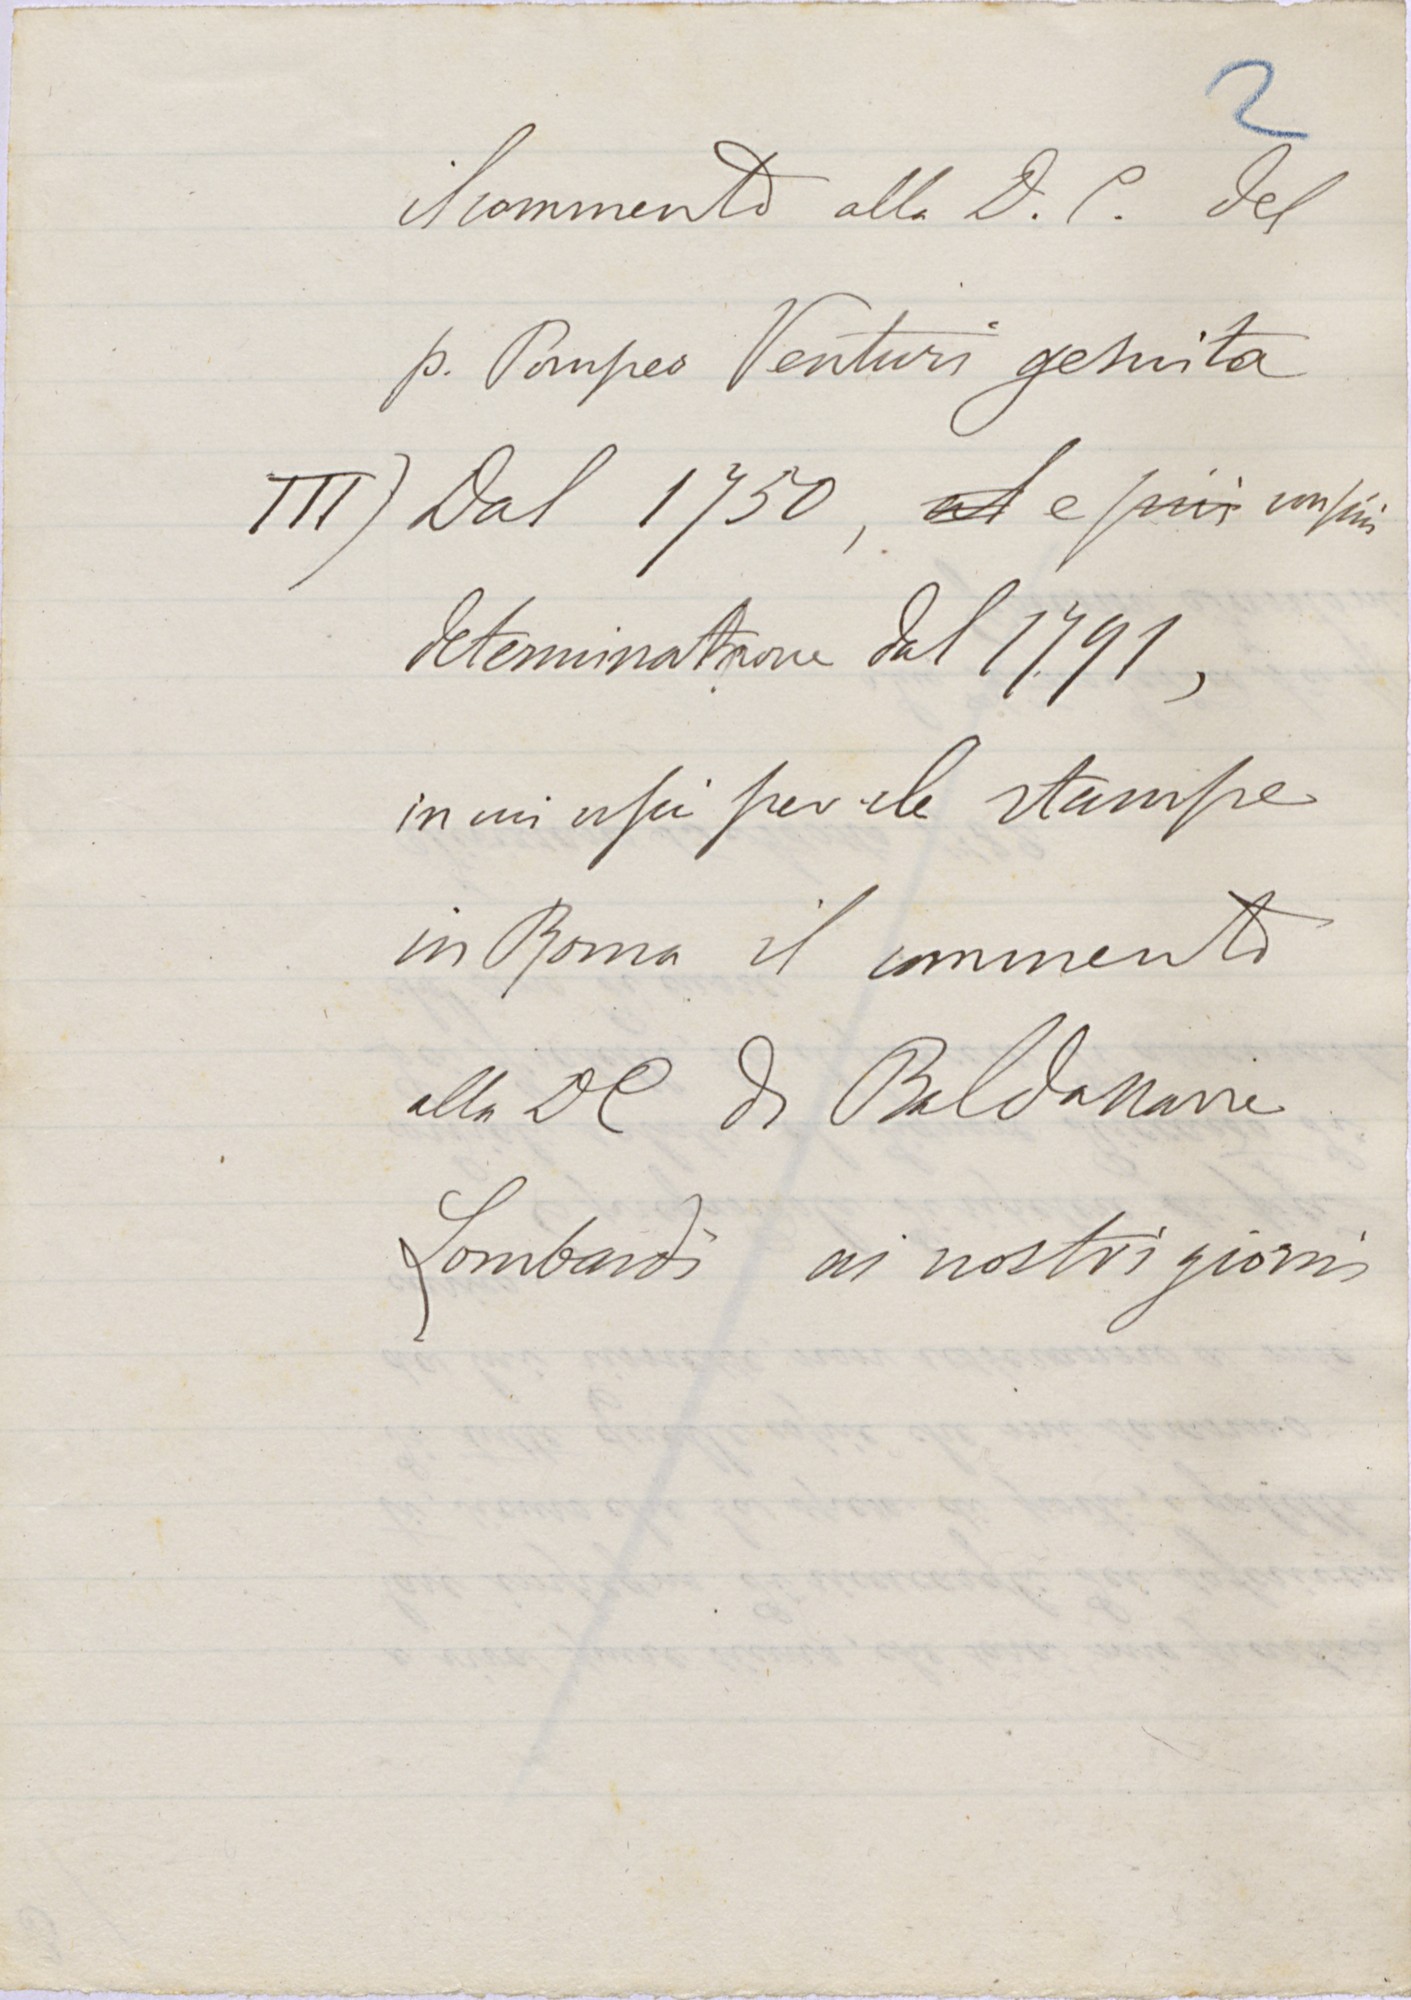 2
il commento alla D. C. del
p. Pompeo Venturi gesuita
III) Dal 1750, e più con più
determinazione dal 1791,
in cui uscì per le stampe
in Roma il commento
alla DC di Baldassarre
Lombardi ai nostri giorni